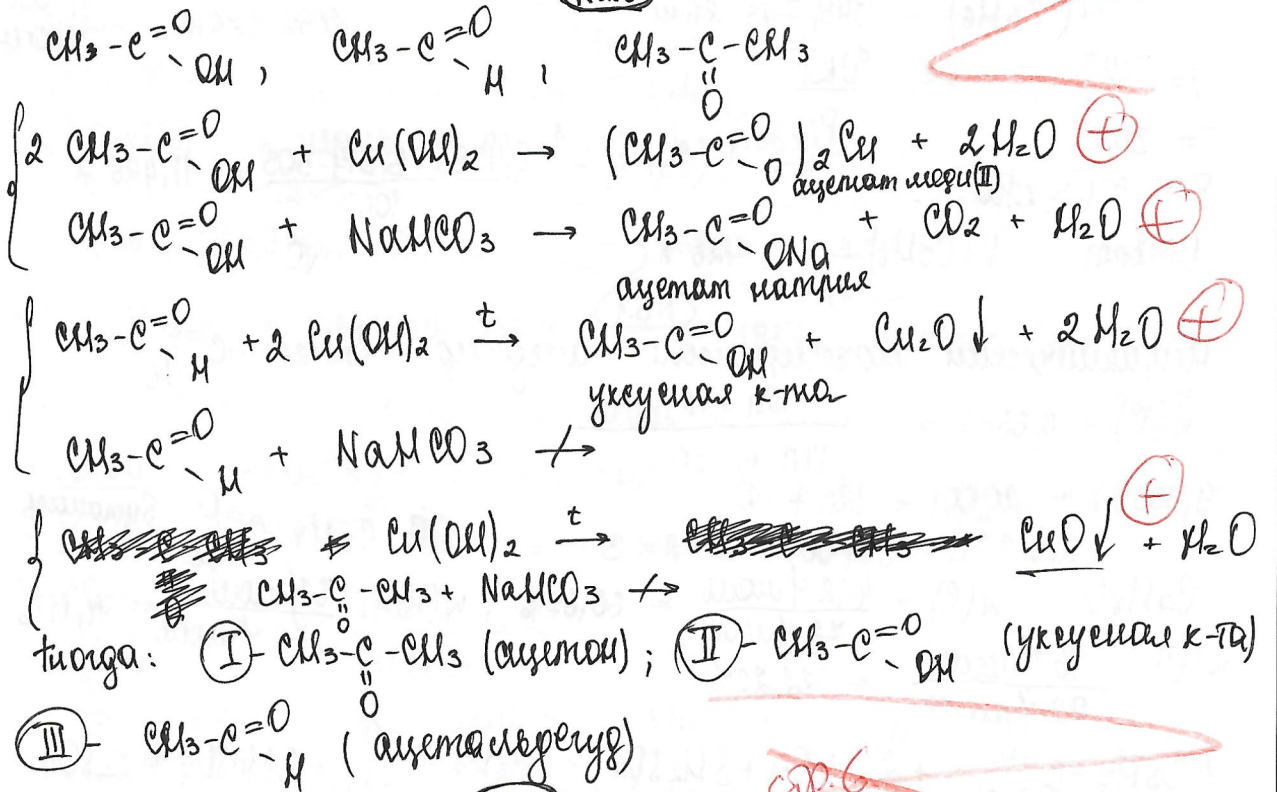 CH₃-C=O -OH , CH₃-C=O -H , CH₃-C-CH₃ =O
2 CH₃-C=O -OH + Cu(OH)₂ → (CH₃-C=O -O)₂Cu + 2H₂O +
ацетат меди(II)
CH₃-C=O -OH + NaHCO₃ → CH₃-C=O -ONa + CO₂ + H₂O +
ацетат натрия
CH₃-C=O -H + 2 Cu(OH)₂ t→ CH₃-C=O -OH + Cu₂O↓ + 2H₂O +
уксусная к-та
CH₃-C=O -H + NaHCO₃ ↛
Cu(OH)₂ t→ CuO↓ + H₂O +
CH₃-C-CH₃ =O + NaHCO₃ ↛
тогда: I - CH₃-C-CH₃ =O (ацетон); II - CH₃-C=O -OH (уксусная к-та)
III - CH₃-C=O -H (ацетальдегид)
стр.6